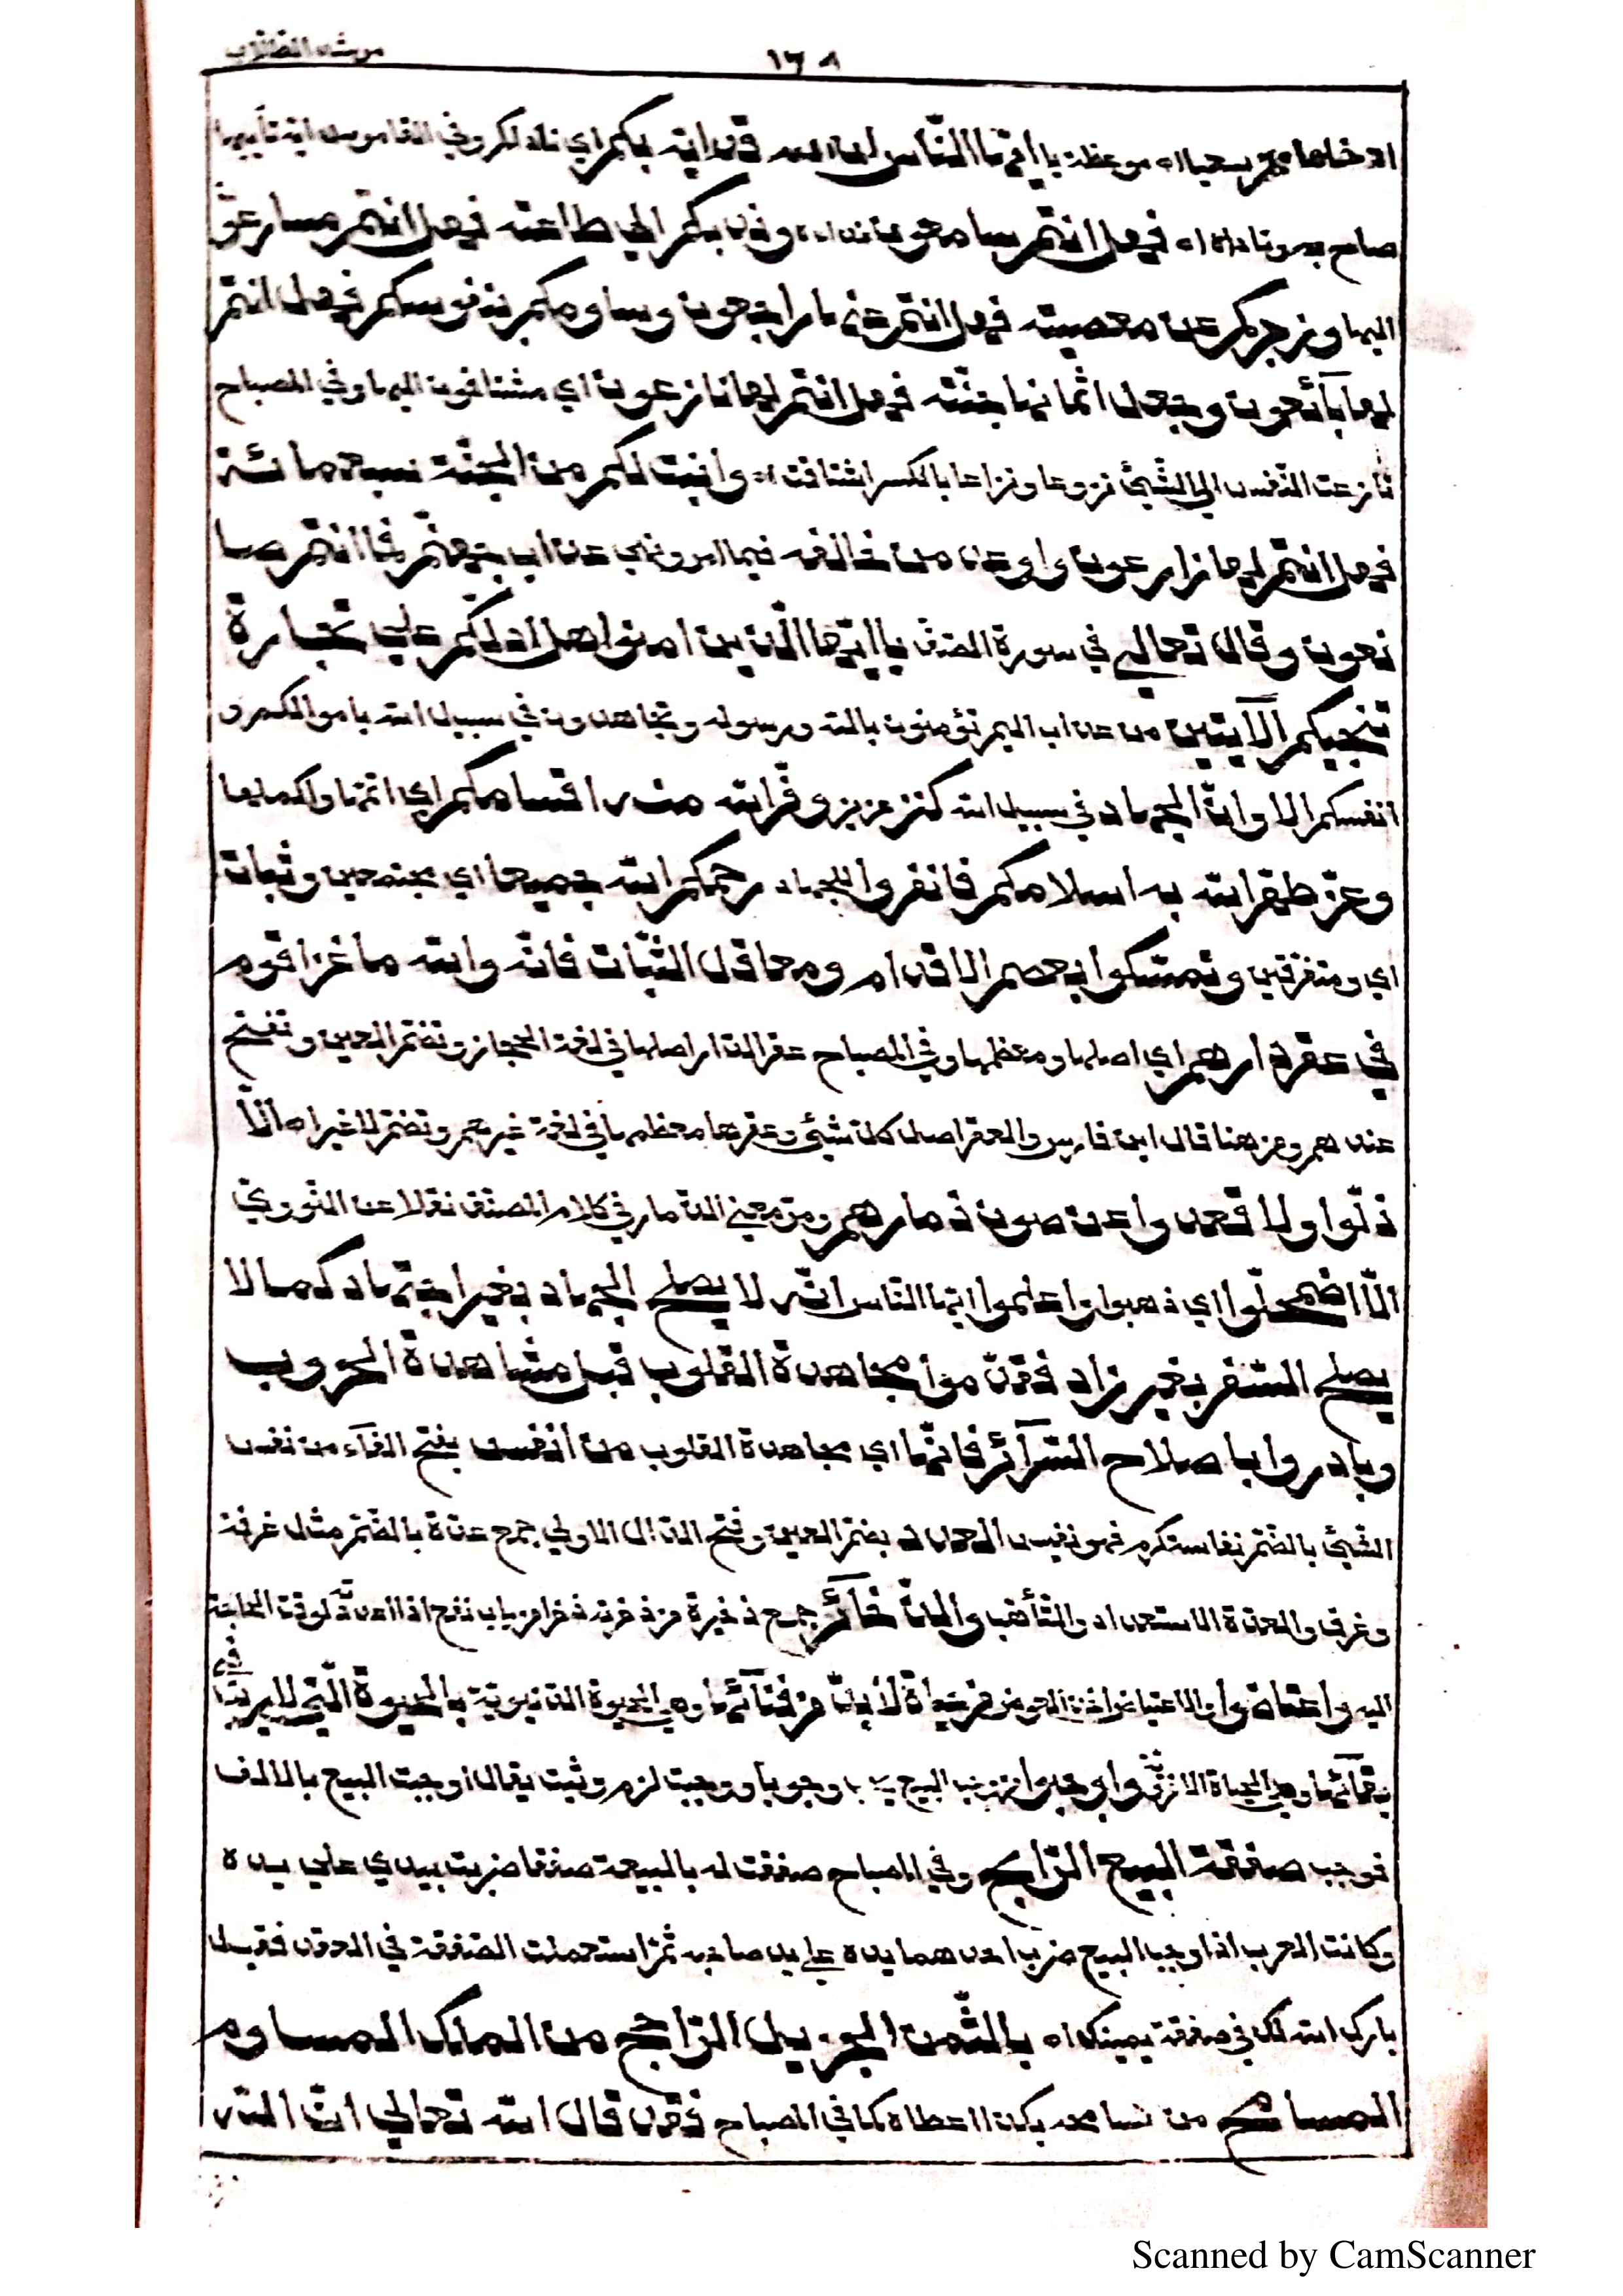 مرشد الطلاب
١٦٨
موعظة يا أيّها النّاس إنّ الله قد أيّه بكم أي ناداكم وفي القاموس أيّه تأييها
صاح به وناداه اه فهل أنتم سامعون نداءه وندبكم إلى طاعته فهل أنتم مسارعون
إليها وزجركم عن معصيته فهل أنتم عنها راجعون وساومكم بنفوسكم فهل أنتم
لها بآئعون وجعل أثمانها جنّته فهل أنتم لها نازعون أي مشتاقون إليها وفي المصباح
نازعت النّفس إلى الشّيئ نزوعا ونزاعا بالكسر اشتاقت اه وانبت لكم من الجنّة سبعمائة
فهل أنتم لها زارعون وأوعد من خالفه فيما أمر ونهى عذاب جهنّم فما أنتم صا
نعون وقال تعالى في سورة الصّفّ يا أيّها الّذين امنوا هل أدلّكم على تجارة
تنجيكم الآيتين من عذاب اليم تؤمنون بالله ورسوله وتجاهدون في سبيل الله باموالكم و
انفسكم الا وانّ الجهاد في سبيل الله كنز عزيز وفّر الله منه اقسامكم اي اتمّها واكملها
وعزّ طهّر الله به اسلامكم فانفروا للجهاد رحمكم الله جميعا اي مجتمعين وثبات
اي ومتفرّقين وتمسّكوا بعصم الاقدام ومعاقل الثّبات فانّه والله ما غزا قوم
في عقر دارهم اي اصلها ومعظمها وفي المصباح عقر الدّار اصلها في لغة الحجاز وتضمّ العين وتفتح
عندهم ومن هنا قال ابن فارس والعقر اصل كلّ شيئ وعقرها معظمها في لغة غيرهم وتضمّ لا غير اه الّا
ذلّوا ولا قعدوا عن صون ذمارهم ومرّ معنى الذّمار في كلام المصنّف نقلا عن النّووي
الّا اضمحلّوا اي ذهبوا واعلموا ايّها النّاس انّه لا يصلح الجهاد بغير اجتهاد كما لا
يصلح السّفر بغير زاد فقدّموا مجاهدة القلوب قبل مشاهدة الحروب
وبادروا باصلاح السّرآئر فانّها اي مجاهدة القلوب من انفس بفتح الفآء من نفس
الشّيئ بالضّمّ نفاسة كرم فهو نفيس العدد بضمّ العين وفتح الدّال الاولى جمع عدّة بالضّمّ مثل غرفة
وغرف والعدّة الاستعداد والتّأهّب والذّخآئر جمع ذخيرة من ذخرته ذخرا من باب نفع اذا اعددته لوقت الحاجة
اليه واعتاضوا والاعتياض اخذ العوض من حياة لا بدّ من فنآئها وهي الحيوة الدّنيويّة بالحيوة الّتي لا ريب في
بقآئها وهي الحياة الاخرويّة واوجبوا من وجب البيع وجوبا ووجبت لزم وثبت يقال اوجبت البيع بالالف
فوجب صفقة البيع الرّابح وفي المصباح صفقت له بالبيعة صفقا ضربت بيدي على يده
وكانت العرب اذا وجب البيع ضرب احدهما يده على يد صاحبه ثمّ استعملت الصّفقة في العقد فقيل
بارك الله لك في صفقة يمينك اه بالثّمن الجزيل الرّاجح من الملك المساوم
المسامح من سامحه بكذا اعطاه كما في المصباح فقد قال الله تعالى انّ الله
Scanned by CamScanner